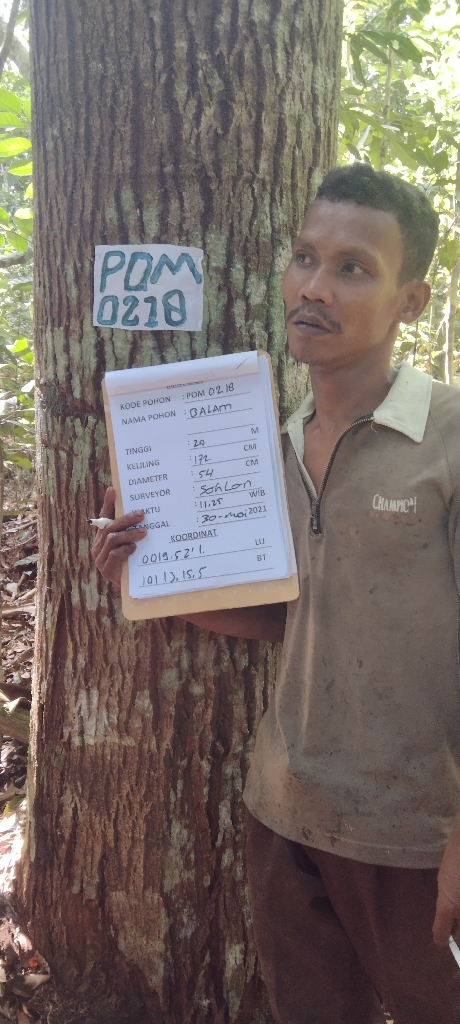 POM
0218
KODE POHON : POM 0218
NAMA POHON : BALAM
TINGGI : 20 M
KELILING : 172 CM
DIAMETER : 54 CM
SURVEYOR : SOHLON
WAKTU : 11.25 WIB
TANGGAL : 30-Mei 2021
KOORDINAT
0019.52'1. LU
10113.15.5 BT
CHAMPIC